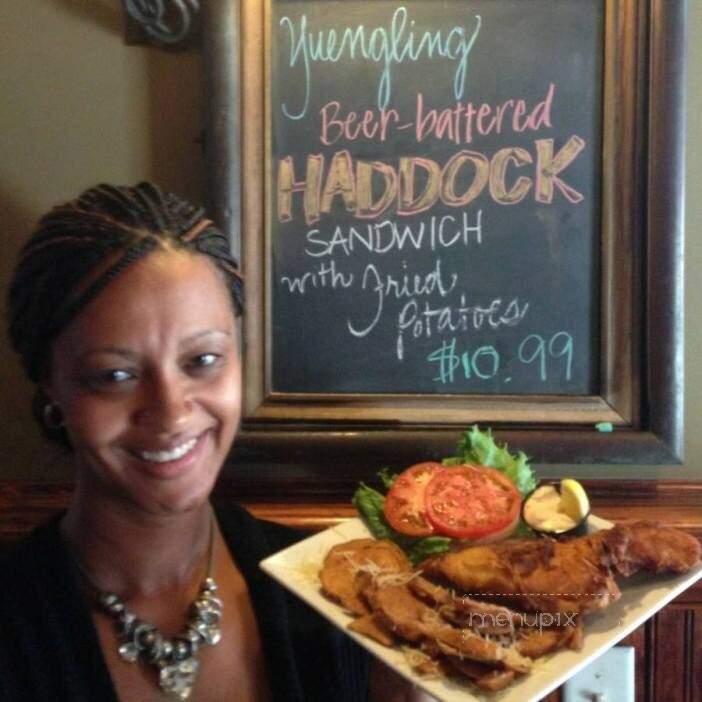 Yuengling
Beer-battered
HADDOCK
SANDWICH
with Fried
Potatoes
$10.99
menupix